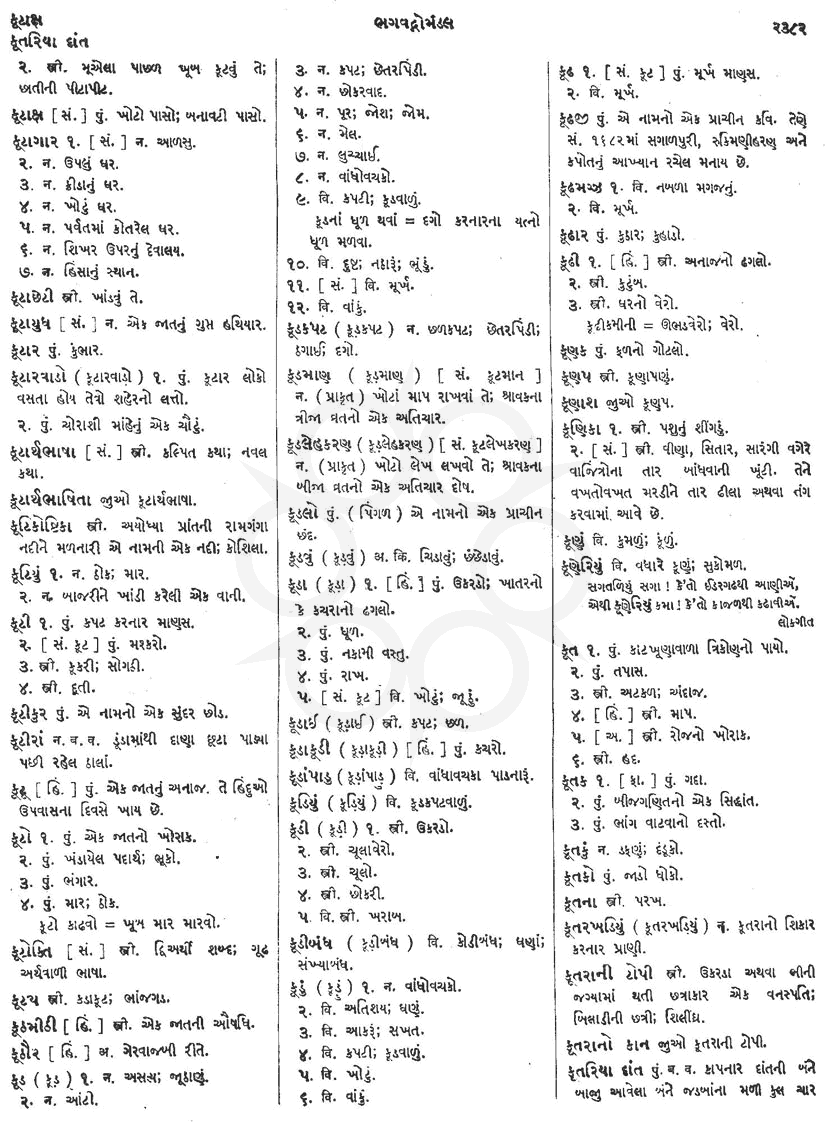 કૂટાક્ષ
ભગવદ્ગોમંડલ
૨૩૮૨
કૂતરિયા દાંત
૨. સ્ત્રી. મૂએલા પાછળ ખૂબ કૂટવું તે;
છાતીની પીટાપીટ.
કૂટાક્ષ [ સં. ] પું. ખોટો પાસો; બનાવટી પાસો.
કૂટાગાર ૧. [ સં. ] ન. આળસુ.
૨. ન. ઉપલું ઘર.
૩. ન. ક્રીડાનું ઘર.
૪. ન. ખોટું ઘર.
૫. ન. પર્વતમાં કોતરેલ ઘર.
૬. ન. શિખર ઉપરનું દેવાલય.
૭. ન. હિંસાનું સ્થાન.
કૂટાછેટી સ્ત્રી. ખાંડવું તે.
કૂટાયુધ [ સં. ] ન. એક જાતનું ગુપ્ત હથિયાર.
કૂટાર પું. કુંભાર.
કૂટારવાડો ( કૂટારવાડ઼ો ) ૧. પું. કૂટાર લોકો
વસતા હોય તેવો શહેરનો લત્તો.
૨. પું. ચોરાશી માંહેનું એક ચૌટું.
કૂટાર્થભાષા [ સં. ] સ્ત્રી. કલ્પિત કથા; નવલ
કથા.
કૂટાર્થભાષિતા જુઓ કૂટાર્થભાષા.
કૂટિકોષ્ટિકા સ્ત્રી. અયોધ્યા પ્રાંતની રામગંગા
નદીને મળનારી એ નામની એક નદી; કોશિલા.
કૂટિયું ૧. ન. ઠોક; માર.
૨. ન. બાજરીને ખાંડી કરેલી એક વાની.
કૂટી ૧. પું. કપટ કરનાર માણસ.
૨. [ સં. કૂટ ] પું. મશ્કરો.
૩. સ્ત્રી. કૂકરી; સોગડી.
૪. સ્ત્રી. દૂતી.
કૂટીકુર પું. એ નામનો એક સુંદર છોડ.
કૂટીરાં ન. બ. વ. ડૂંડામાંથી દાણા છૂટા પાડ્યા
પછી રહેલ ઠાલાં.
કૂટૂ [ હિં. ] પું. એક જાતનું અનાજ. તે હિંદુઓ
ઉપવાસના દિવસે ખાય છે.
કૂટો ૧. પું. એક જાતનો ખોરાક.
૨. પું. ખંડાયેલ પદાર્થ; ભૂકો.
૩. પું. ભંગાર.
૪. પું. માર; ઠોક.
કૂટો કાઢવો = ખૂબ માર મારવો.
કૂટોક્તિ [ સં. ] સ્ત્રી. દ્વિઅર્થી શબ્દ; ગૂઢ
અર્થવાળી ભાષા.
કૂટ્ય સ્ત્રી. કડાકૂટ; ભાંજગડ.
કૂઠમીઠી [ હિં. ] સ્ત્રી. એક જાતની ઔષધિ.
કૂઠૌર [ હિં. ] અ. ગેરવાજબી રીતે.
કૂડ ( કૂડ઼ ) ૧. ન. અસત્ય; જૂઠાણું.
૨. ન. આંટી.
૩. ન. કપટ; છેતરપિંડી.
૪. ન. છોકરવાદ.
૫. ન. પૂર; જોશ; જોમ.
૬. ન. મેલ.
૭. ન. લુચ્ચાઈ.
૮. ન. વાંધોવચકો.
૯. વિ. કપટી; કૂડવાળું.
કૂડનાં ધૂળ થવાં = દગો કરનારના યત્નો
ધૂળ મળવા.
૧૦. વિ. દુષ્ટ; નઠારું; ભૂંડું.
૧૧. [ સં. ] વિ. મૂર્ખ.
૧૨. વિ. વાંકું.
કૂડકપટ ( કૂડ઼કપટ ) ન. છળકપટ; છેતરપિંડી;
ઠગાઈ; દગો.
કૂડમાણુ ( કૂડ઼માણુ ) [ સં. કૂટમાન ]
ન. ( પ્રાકૃત ) ખોટાં માપ રાખવાં તે; શ્રાવકના
ત્રીજા વ્રતનો એક અતિચાર.
કૂડલેહકરણ ( કૂડ઼લેહકરણ ) [ સં. કૂટલેખકરણ ]
ન. ( પ્રાકૃત ) ખોટો લેખ લખવો તે; શ્રાવકના
બીજા વ્રતનો એક અતિચાર દોષ.
કૂડલો પું. ( પિંગળ ) એ નામનો એક પ્રાચીન
છંદ.
કૂડવું ( કૂડ઼વું ) અ. ક્રિ. ચિડાવું; છંછેડાવું.
કૂડા ( કૂડ઼ા ) ૧. [ હિં. ] પું. ઉકરડો; ખાતરનો
કે કચરાનો ઢગલો.
૨. પું. ધૂળ.
૩. પું. નકામી વસ્તુ.
૪. પું. રાખ.
૫. [ સં. કૂટ ] વિ. ખોટું; જૂઠું.
કૂડાઈ ( કૂડ઼ાઈ ) સ્ત્રી. કપટ; છળ.
કૂડાકૂડી ( કૂડ઼ાકૂડ઼ી ) [ હિં. ] પું. કચરો.
કૂડાંપાડુ ( કૂડ઼ાંપાડ઼ુ ) વિ. વાંધાવચકા પાડનારું.
કૂડિયું ( કૂડ઼િયું ) વિ. કૂડકપટવાળું.
કૂડી ( કૂડ઼ી ) ૧. સ્ત્રી. ઉકરડો.
૨. સ્ત્રી. ચૂલાવેરો.
૩. સ્ત્રી. ચૂલો.
૪. સ્ત્રી. છોકરી.
૫. વિ. સ્ત્રી. ખરાબ.
કૂડીબંધ ( કૂડ઼ીબંધ ) વિ. કોડીબંધ; ઘણાં;
સંખ્યાબંધ.
કૂડું ( કૂડ઼ું ) ૧. ન. વાંધોવચકો.
૨. વિ. અતિશય; ઘણું.
૩. વિ. આકરું; સખત.
૪. વિ. કપટી; કૂડવાળું.
૫. વિ. ખોટું.
૬. વિ. વાંકું.
કૂઢ ૧. [ સં. કૂટ ] પું. મૂર્ખ માણસ.
૨. વિ. મૂર્ખ.
કૂઢજી પું. એ નામનો એક પ્રાચીન કવિ. તેણે
સં. ૧૬૮૨માં સગાળપુરી, રુકિમણીહરણ અને
કપોતનું આખ્યાન રચેલ મનાય છે.
કૂઢમગ્જ ૧. વિ. નબળા મગજનું.
૨. વિ. મૂર્ખ.
કૂઢાર પું. કુઠાર; કુહાડો.
કૂઢી ૧. [ હિં. ] સ્ત્રી. અનાજનો ઢગલો.
૨. સ્ત્રી. કુટુંબ.
૩. સ્ત્રી. ઘરનો વેરો.
કૂટીકમીની = ઊભડવેરો; વેરો.
કૂણક પું. ફળનો ગોટલો.
કૂણપ સ્ત્રી. કૂણાપણું.
કૂણાશ જુઓ કૂણપ.
કૂણિકા ૧. સ્ત્રી. પશુનું શીંગડું.
૨. [ સં. ] સ્ત્રી. વીણા, સિતાર, સારંગી વગેરે
વાજિંત્રોના તાર બાંધવાની ખૂંટી. તેને
વખતોવખત મરડીને તાર ઢીલા અથવા તંગ
કરવામાં આવે છે.
કૂણું વિ. કુમળું; કૂળું.
કૂણેરિયું વિ. વધારે કૂણું; સુકોમળ.
સગતળિયું સગા ! કે'તો ઇડરગઢથી આણીએં,
એથી કૂણેરિયું કમા ! કે'તો કાજળથી કઢાવીએં.
લોકગીત
કૂત ૧. પું. કાટખૂણાવાળા ત્રિકોણનો પાયો.
૨. પું. તપાસ.
૩. સ્ત્રી. અટકળ; અંદાજ.
૪. [ હિં. ] સ્ત્રી. માપ.
૫. [ અ. ] સ્ત્રી. રોજનો ખોરાક.
૬. સ્ત્રી. હદ.
કૂતક ૧. [ ફા. ] પું. ગદા.
૨. પું. બીજગણિતનો એક સિદ્ધાંત.
૩. પું. ભાંગ વાટવાનો દસ્તો.
કૂતકું ન. ડફણું; દંડૂકો.
કૂતકો પું. જાડો ધોકો.
કૂતના સ્ત્રી. પરખ.
કૂતરખડિયું ( કૂતરખડ઼િયું ) ન. કૂતરાનો શિકાર
કરનાર પ્રાણી.
કૂતરાની ટોપી સ્ત્રી. ઉકરડા અથવા બીની
જગ્યામાં થતી છત્રાકાર એક વનસ્પતિ;
બિલાડીની છત્રી; શિલીંધ્ર.
કૂતરાનો કાન જુઓ કૂતરાની ટોપી.
કૂતરિયા દાંત પું. બ. વ. કાપનાર દાંતની બંને
બાજુ આવેલા બંને જડબાંના મળી કુલ ચાર